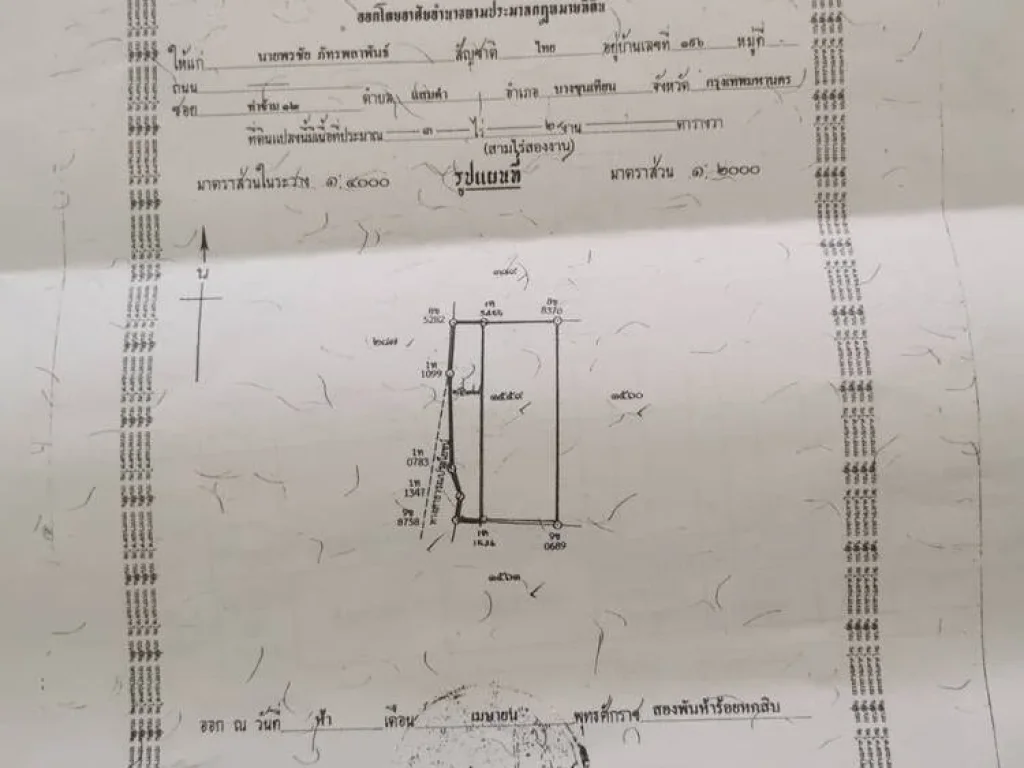 ออกโดยอาศัยอำนาจตามประมวลกฎหมายที่ดิน
ให้แก่ นายพรชัย ภัทรพลาพันธ์ สัญชาติ ไทย อยู่บ้านเลขที่ ๑๕๖ หมู่ที่
ถนน
ซอย ท่าข้าม ๑๒ ตำบล แสมดำ อำเภอ บางขุนเทียน จังหวัด กรุงเทพมหานคร
ที่ดินแปลงนี้มีเนื้อที่ประมาณ ๓ ไร่ ๒ งาน ตารางวา
(สามไร่สองงาน)
มาตราส่วนในระวาง ๑:๔๐๐๐ รูปแผนที่ มาตราส่วน ๑:๒๐๐๐
น
5282
8370
๒๔๗
1ท
1099
๑๕๕๙
๑๕๖๐
1ท
0783
1ท
1347
ทางสาธารณประโยชน์
9ช
8758
9ช
0689
๑๕๖๑
ออก ณ วันที่ ห้า เดือน เมษายน พุทธศักราช สองพันห้าร้อยหกสิบ